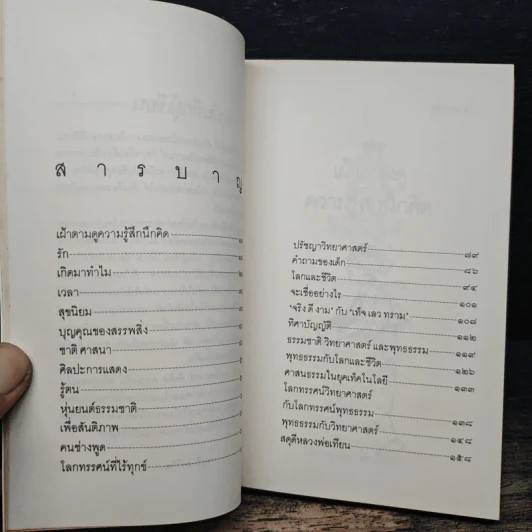 สารบาญ
เฝ้าตามดูความรู้สึกนึกคิด
รัก
เกิดมาทำไม
เวลา
สุขนิยม
บุญคุณของสรรพสิ่ง
ชาติ ศาสนา
ศิลปะการแสดง
รู้ตน
หุ่นยนต์ธรรมชาติ
เพื่อสันติภาพ
คนช่างพูด
โลกทรรศน์ที่ไร้ทุกข์
ปรัชญาวิทยาศาสตร์ ๗๙
คำถามของเด็ก ๘๖
โลกและชีวิต ๙๔
จะเชื่ออย่างไร ๑๐๑
'จริง ดี งาม' กับ 'เท็จ เลว ทราม' ๑๐๗
ทิศาบัญญัติ ๑๑๒
ธรรมชาติ วิทยาศาสตร์ และพุทธธรรม ๑๑๙
พุทธธรรมกับโลกและชีวิต ๑๒๖
ศาสนธรรมในยุคเทคโนโลยี ๑๓๓
โลกทรรศน์วิทยาศาสตร์
กับโลกทรรศน์พุทธธรรม ๑๓๘
พุทธธรรมกับวิทยาศาสตร์ ๑๔๘
สดุดีหลวงพ่อเทียน ๑๕๘